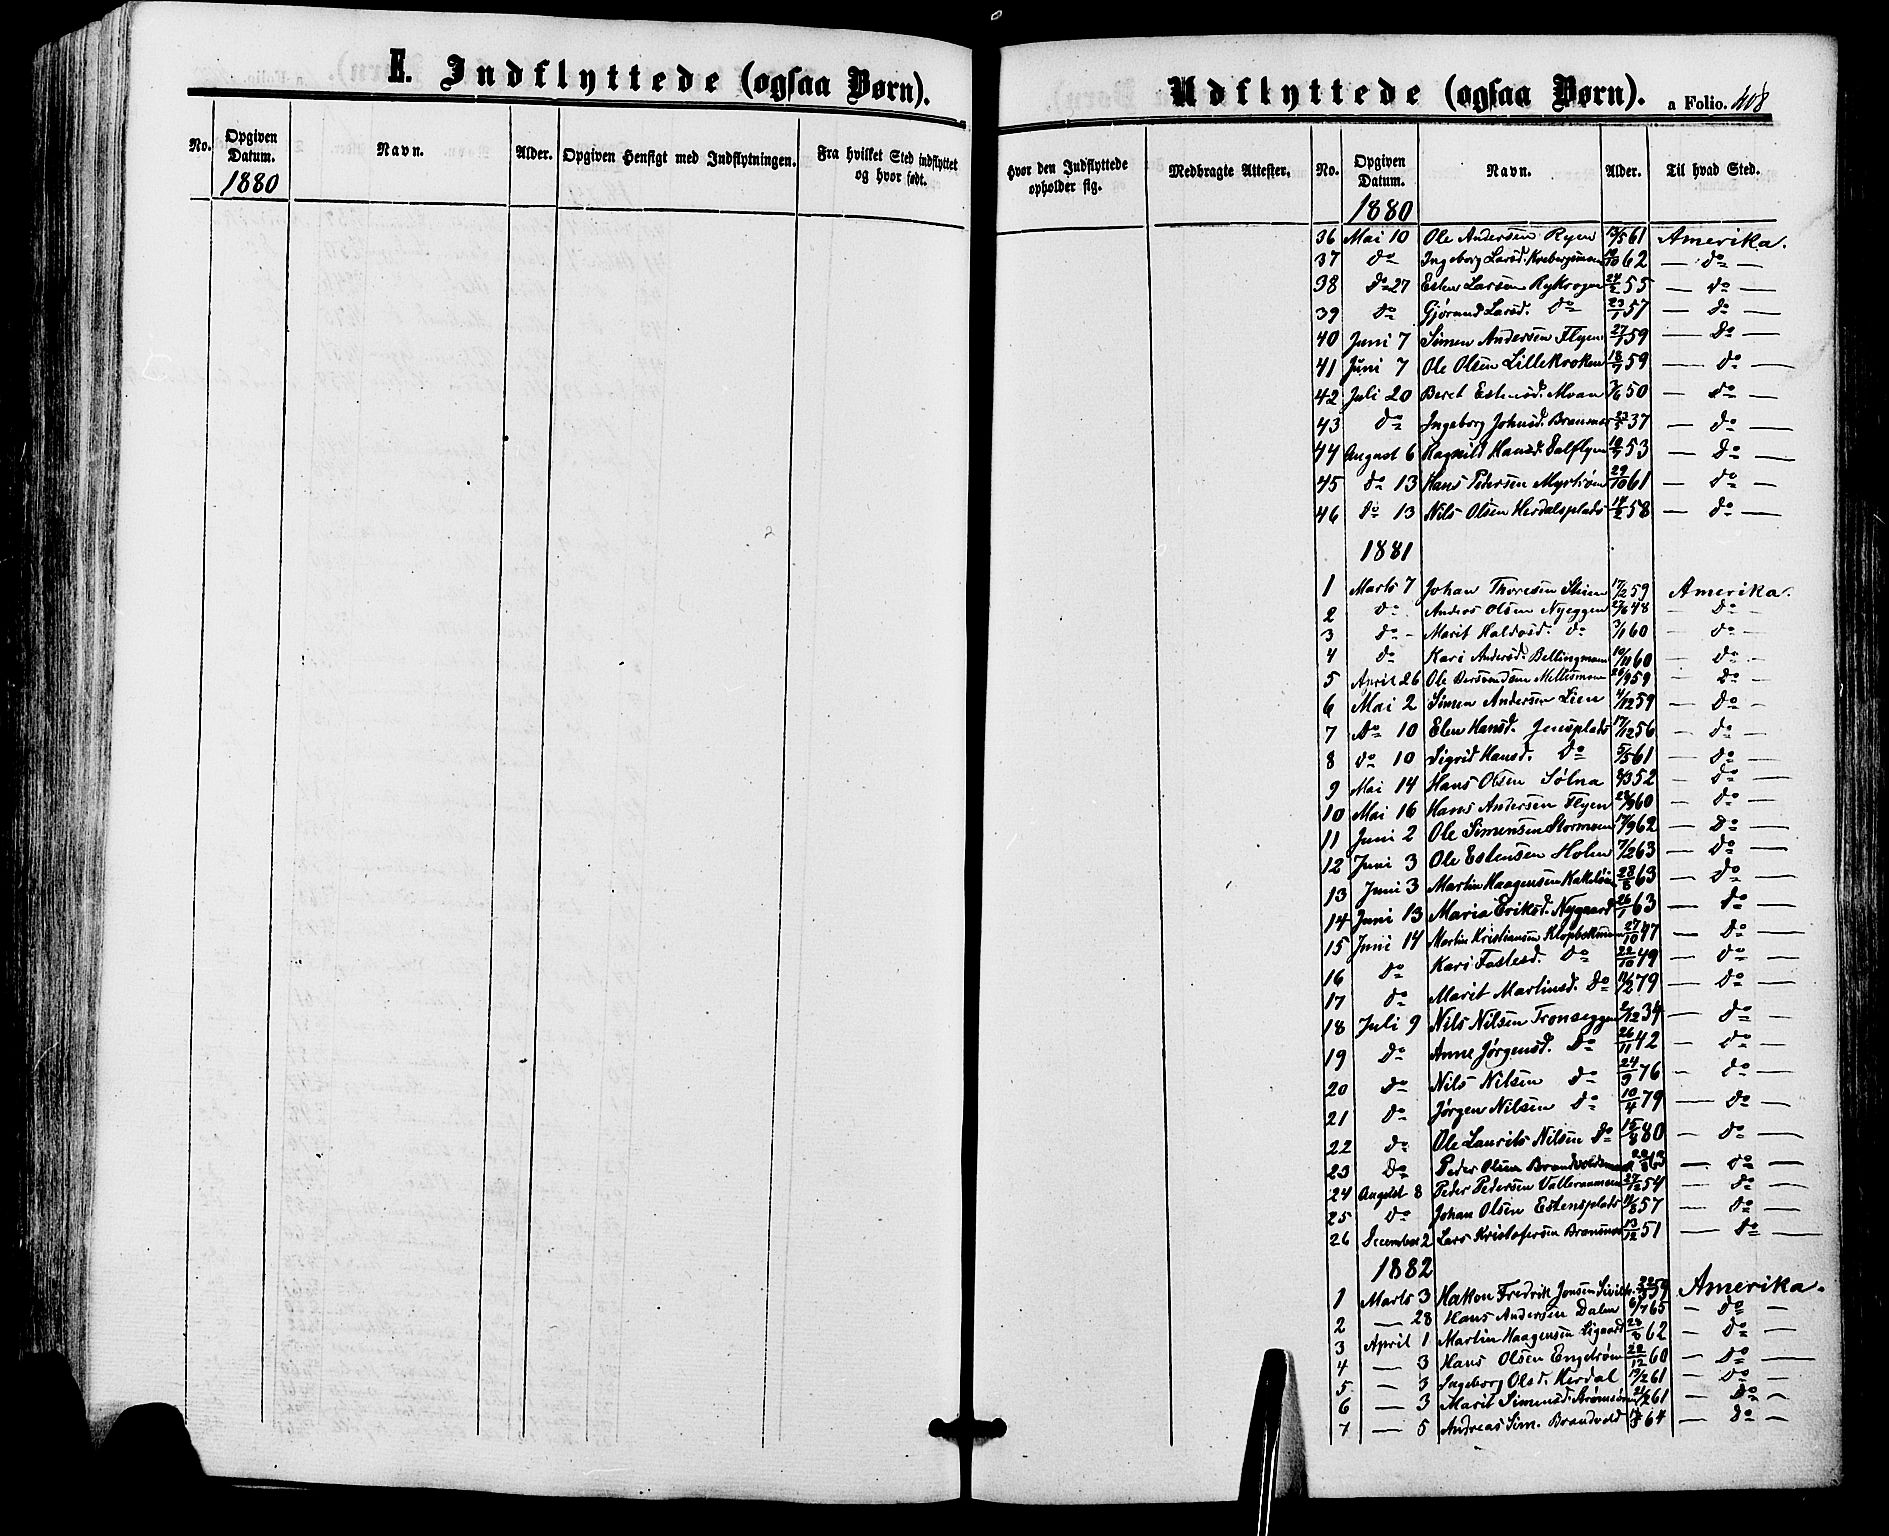 E. Indflyttede (ogsaa Børn).
No. Opgiven Datum. Navn. Alder. Opgiven Hensigt med Indflytningen. Fra hvilket Sted indflyttet og hvor født.
1880
Udflyttede (ogsaa Børn). a Folio. 408
Hvor den Indflyttede opholder sig. Medbragte Attester. No. Opgiven Datum. Navn. Alder. Til hvad Sted.
1880
36 Mai 10 Ole Andersen Ryen 61 Amerika.
37 do Ingeborg Larsd. 62 — do —
38 do 27 Esten Larsen 24/2 55 — do —
39 do Gjørund Larsd. do 23/1 57 — do —
40 Juni 7 Simen Andersen Flyen 27/1 59 — do —
41 Juni 7 Ole Olsen Lillekroken 18/7 59 — do —
42 Juli 20 Beret Estensd. Moan 50 — do —
43 do Ingeborg Johnsd. 37 — do —
44 August 6 Ragnild Hansd. 53 — do —
45 do 13 Hans Pedersen 29/10 61 — do —
46 do 13 Nils Olsen Herdalsplads 14/2 58 — do —
1881
1 Marts 7 Johan Thoresen Stuen 17/2 59 Amerika.
2 do Anders Olsen Nyeggen 48 — do —
3 do Marit Haldosd. do 60 — do —
4 do Kari Andersd. Bellingmoen 10/11 60 — do —
5 April 26 Ole 59 — do —
6 Mai 2 Simen Andersen Lien 4/12 59 — do —
7 do 10 Elen Hansd. Jensplads 17/12 56 — do —
8 do 10 Sigrid Hansd. do 5/5 61 — do —
9 Mai 14 Hans Olsen Sølna 52 — do —
10 Mai 16 Hans Andersen Flyen 60 — do —
11 Juni 2 Ole Simensen Stormoen 17/9 62 — do —
12 Juni 3 Ole Estensen Holen 7/2 63 — do —
13 Juni 3 Martin Haagensen 28/8 63 — do —
14 Juni 13 Maria Eriksd. Nygaard 26/1 63 — do —
15 Juni 14 Martin Kristiansen 27/10 47 — do —
16 do Kari Fastesd. do 22/10 49 — do —
17 do Marit Martinsd. do 79 — do —
18 Juli 9 Nils Nilsen Tronseggen 2/12 34 — do —
19 do Anne Jørgensd. do 26/11 42 — do —
20 do Nils Nilsen do 24/9 76 — do —
21 do Jørgen Nilsen do 10/4 79 — do —
22 do Ole Laurits Nilsen do 15/8 80 — do —
23 do Peder Olsen Brandvoldsmoen 63 — do —
24 August 8 Peder Pedersen 54 — do —
25 do Johan Olsen Estensplads 57 — do —
26 December 2 Lars Kristofersen 13/12 51 — do —
1882
1 Marts 3 Hakon Fredrik Jonsen 59 Amerika.
2 — 28 Hans Andersen Dalen 6/7 65 — do —
3 April 1 Martin Haagensen 28/8 62 — do —
4 — 3 Hans Olsen Engstrøm 28/12 60 — do —
5 — 3 Ingeborg Olsd. Herdal 61 — do —
6 — 3 Marit Simensd. 61 — do —
7 — 5 Andreas Sim. Brandvold 64 — do —